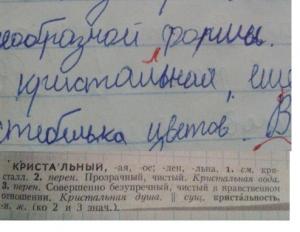 еообразной формы.
кристальная, еще
стебелька цветов. В
КРИСТА'ЛЬНЫЙ, -ая, -ое; -лен, -льна. 1. см. кри-
сталл. 2. перен. Прозрачный, чистый. Кристальная вода.
3. перен. Совершенно безупречный, чистый в нравственном
отношении. Кристальная душа. || сущ. кристальность,
-и, ж. (ко 2 и 3 знач.).